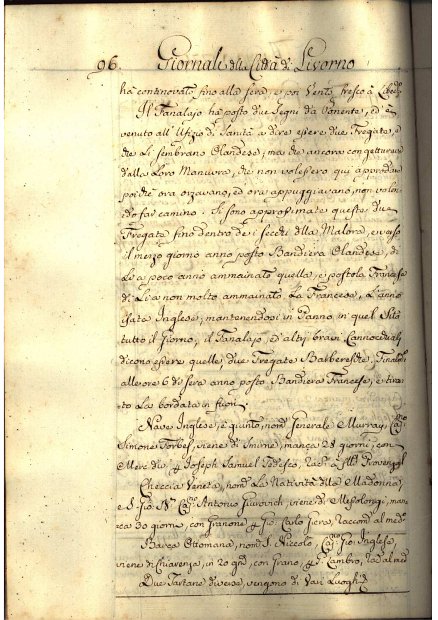 96. Giornali della Città di Livorno
ha continovato fino alla sera, e poi Vento fresco à
Il Fanalajo ha posto due Segni dà Ponente, ed è
venuto all' Ufizio di Sanità a dire essere due Fregate, e
che Li sembrano Olandese, ma che ancora
dalla Loro Manuvra, che non volessero qui approdare
poiche ora orzavano, ed ora appuggiavano, non volen-
do far camino. Si sono approssimate queste due
Fregate fino dentro de i secchi della Malora, e verso
il mezzo giorno anno posto Bandiera Olandese, di
Li a poco anno ammainato quella, e postola Francese
di Li a non molto ammainato La Francese, L'anno
Inglese, mantenendosi in Panno in quel Sito
tutto il Giorno, il Fanalajo, ed altri
dicono essere quelle, due Fregate Barberesche,
alle ore 6 di sera anno posto Bandiera Francese, e tira-
to La bordata in fuori.
Nave Inglese, è giunta, nom. Generale Murray, Cap.no
Simone Torbes, viene di Smirne, manca 28 giorni, con
Merc. die p. Joseph Samuel Tedesco,
Checcia Veneta, nom. La Natività della Madonna,
e S. Gio. Cap.no Antonio Giurovich, viene di Messolongi, man-
ca 30 giorni, con Granone p. Gio. Carlo Racom. al med.
Barca Ottomana, nom. S. Niccolo, Cap.no Gio. Inglese,
viene di Chiarenza, in 20 gni, con Grano, al med.
Due Tartane diverse, vengono di Vari Luoghi